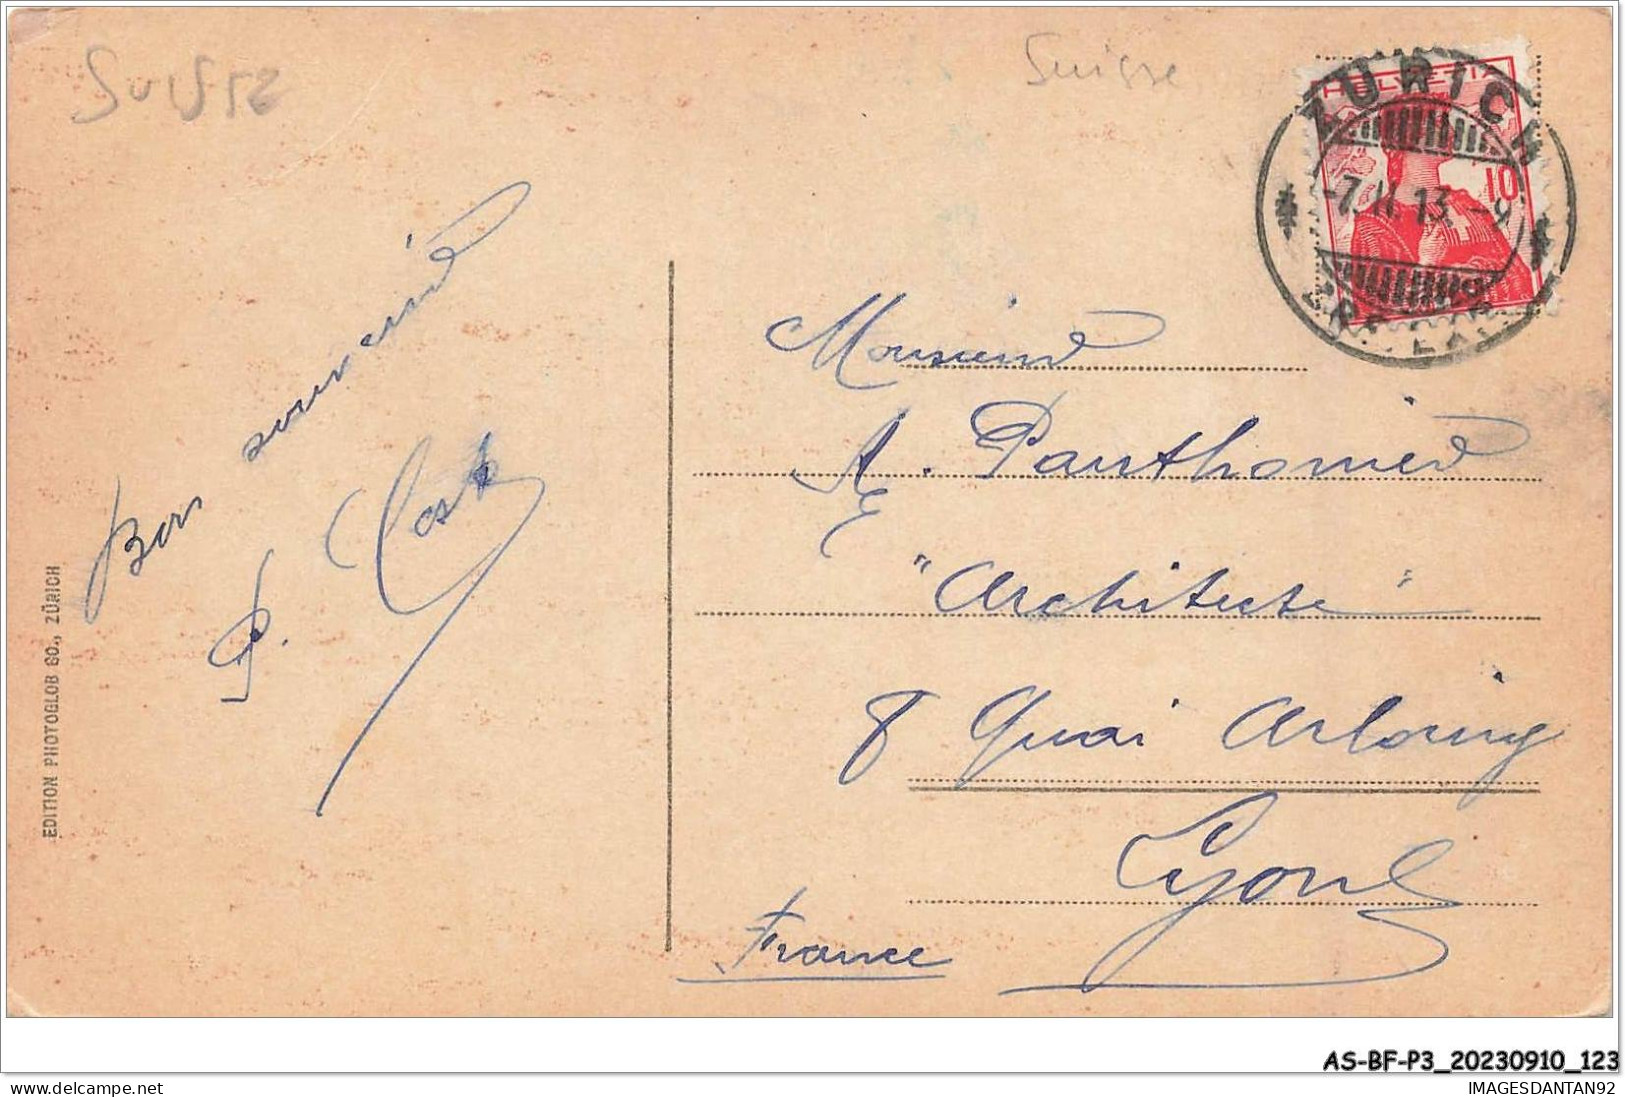 Suisse
Suisse
HELVETIA
ZÜRICH
10
-7.II.13.-9
Bon souvenir
P. Cost
Monsieur
A. Panthonier
"Architecte"
8 Quai Arloing
Lyon
France
EDITION PHOTOGLOB CO., ZÜRICH
AS-BF-P3_20230910_123
IMAGESDANTAN92